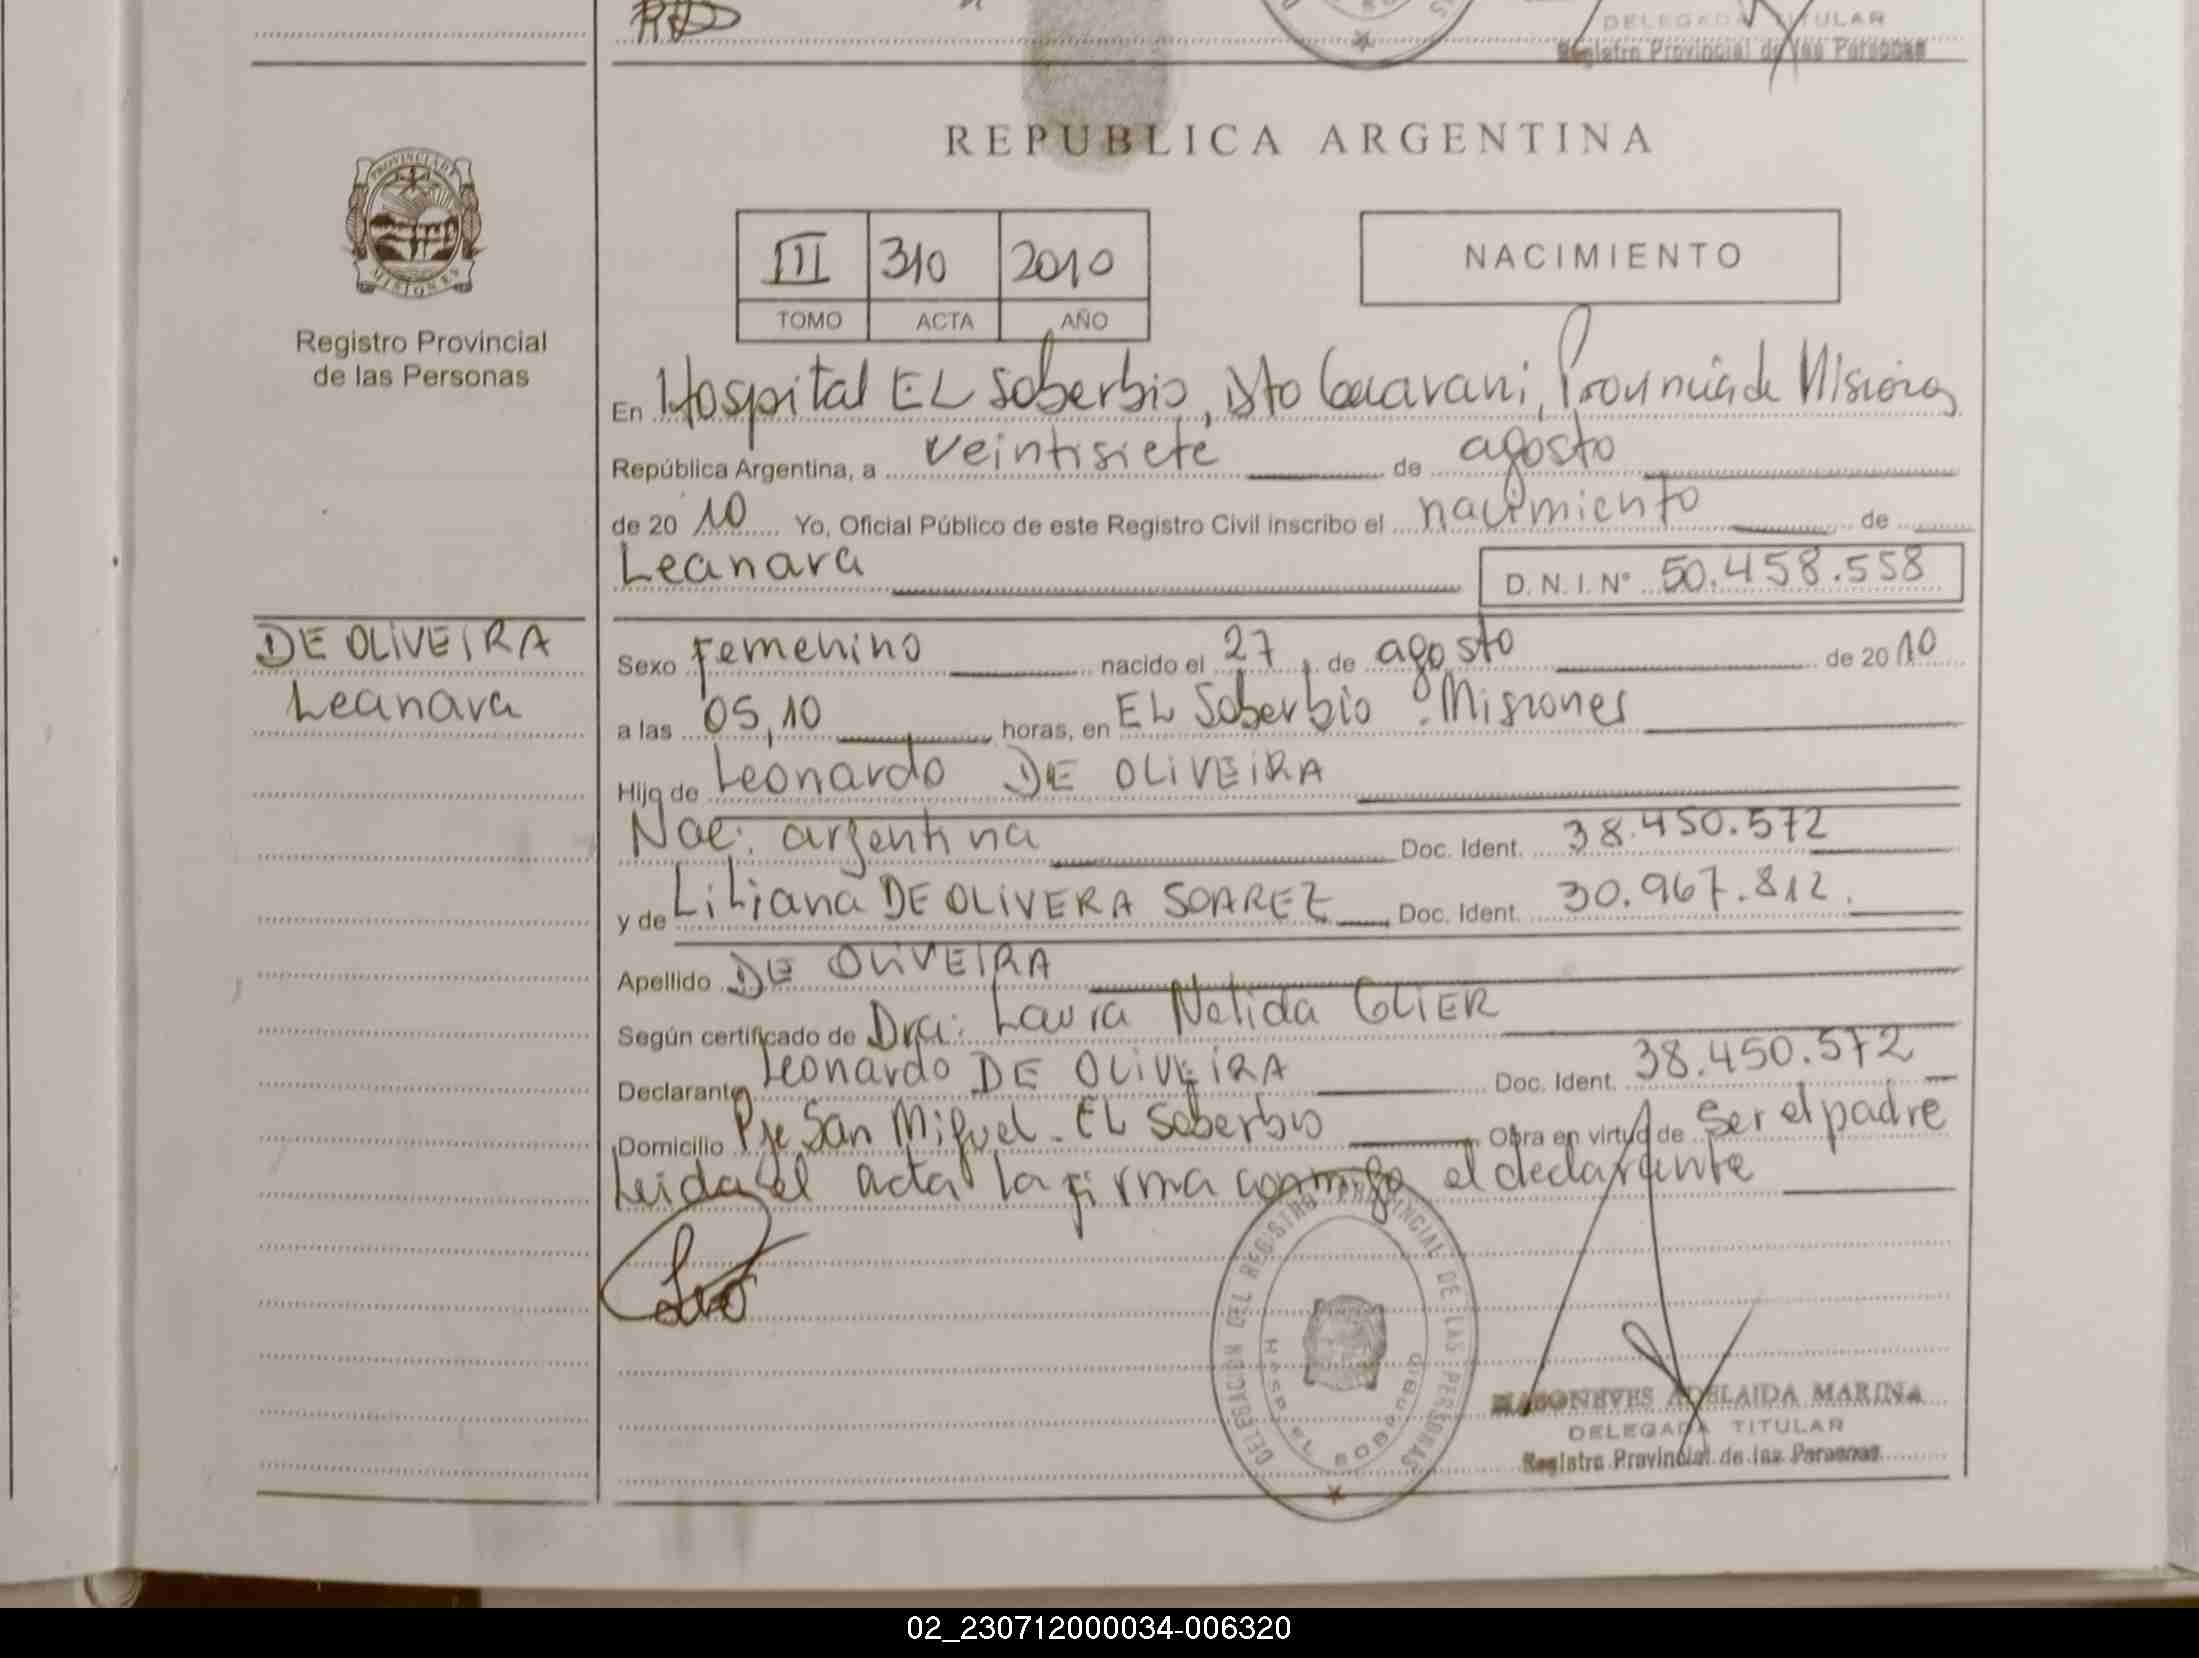 DELEGADA TITULAR
Registro Provincial de las Personas
REPUBLICA ARGENTINA
PROVINCIA DE
MISIONES
Registro Provincial
de las Personas
III 310 2010
TOMO ACTA AÑO
NACIMIENTO
En Hospital EL Soberbio, Dto Guarani, Provincia de Misiones
República Argentina, a veintisiete de agosto
de 2010 Yo, Oficial Público de este Registro Civil inscribo el nacimiento de
Leanara D. N. I. Nº 50.458.558
DE OLIVEIRA
Leanara
Sexo Femenino nacido el 27 de agosto de 2010
a las 05,10 horas, en EL Soberbio - Misiones
Hijo de Leonardo DE OLIVEIRA
Nac: argentina Doc. Ident. 38.450.572
y de Liliana DE OLIVERA SOAREZ Doc. Ident. 30.967.812.
Apellido DE OLIVEIRA
Según certificado de Dra: Laura Nelida GLIER
Declarante Leonardo DE OLIVEIRA Doc. Ident. 38.450.572
Domicilio Pje San Miguel - EL Soberbio Obra en virtud de Ser el padre
Leida el acta la firma conmigo el declarante
DELEGACION DEL REGISTRO PROVINCIAL DE LAS PERSONAS
ADELAIDA MARINA
DELEGADA TITULAR
Registro Provincial de las Personas
02_230712000034-006320